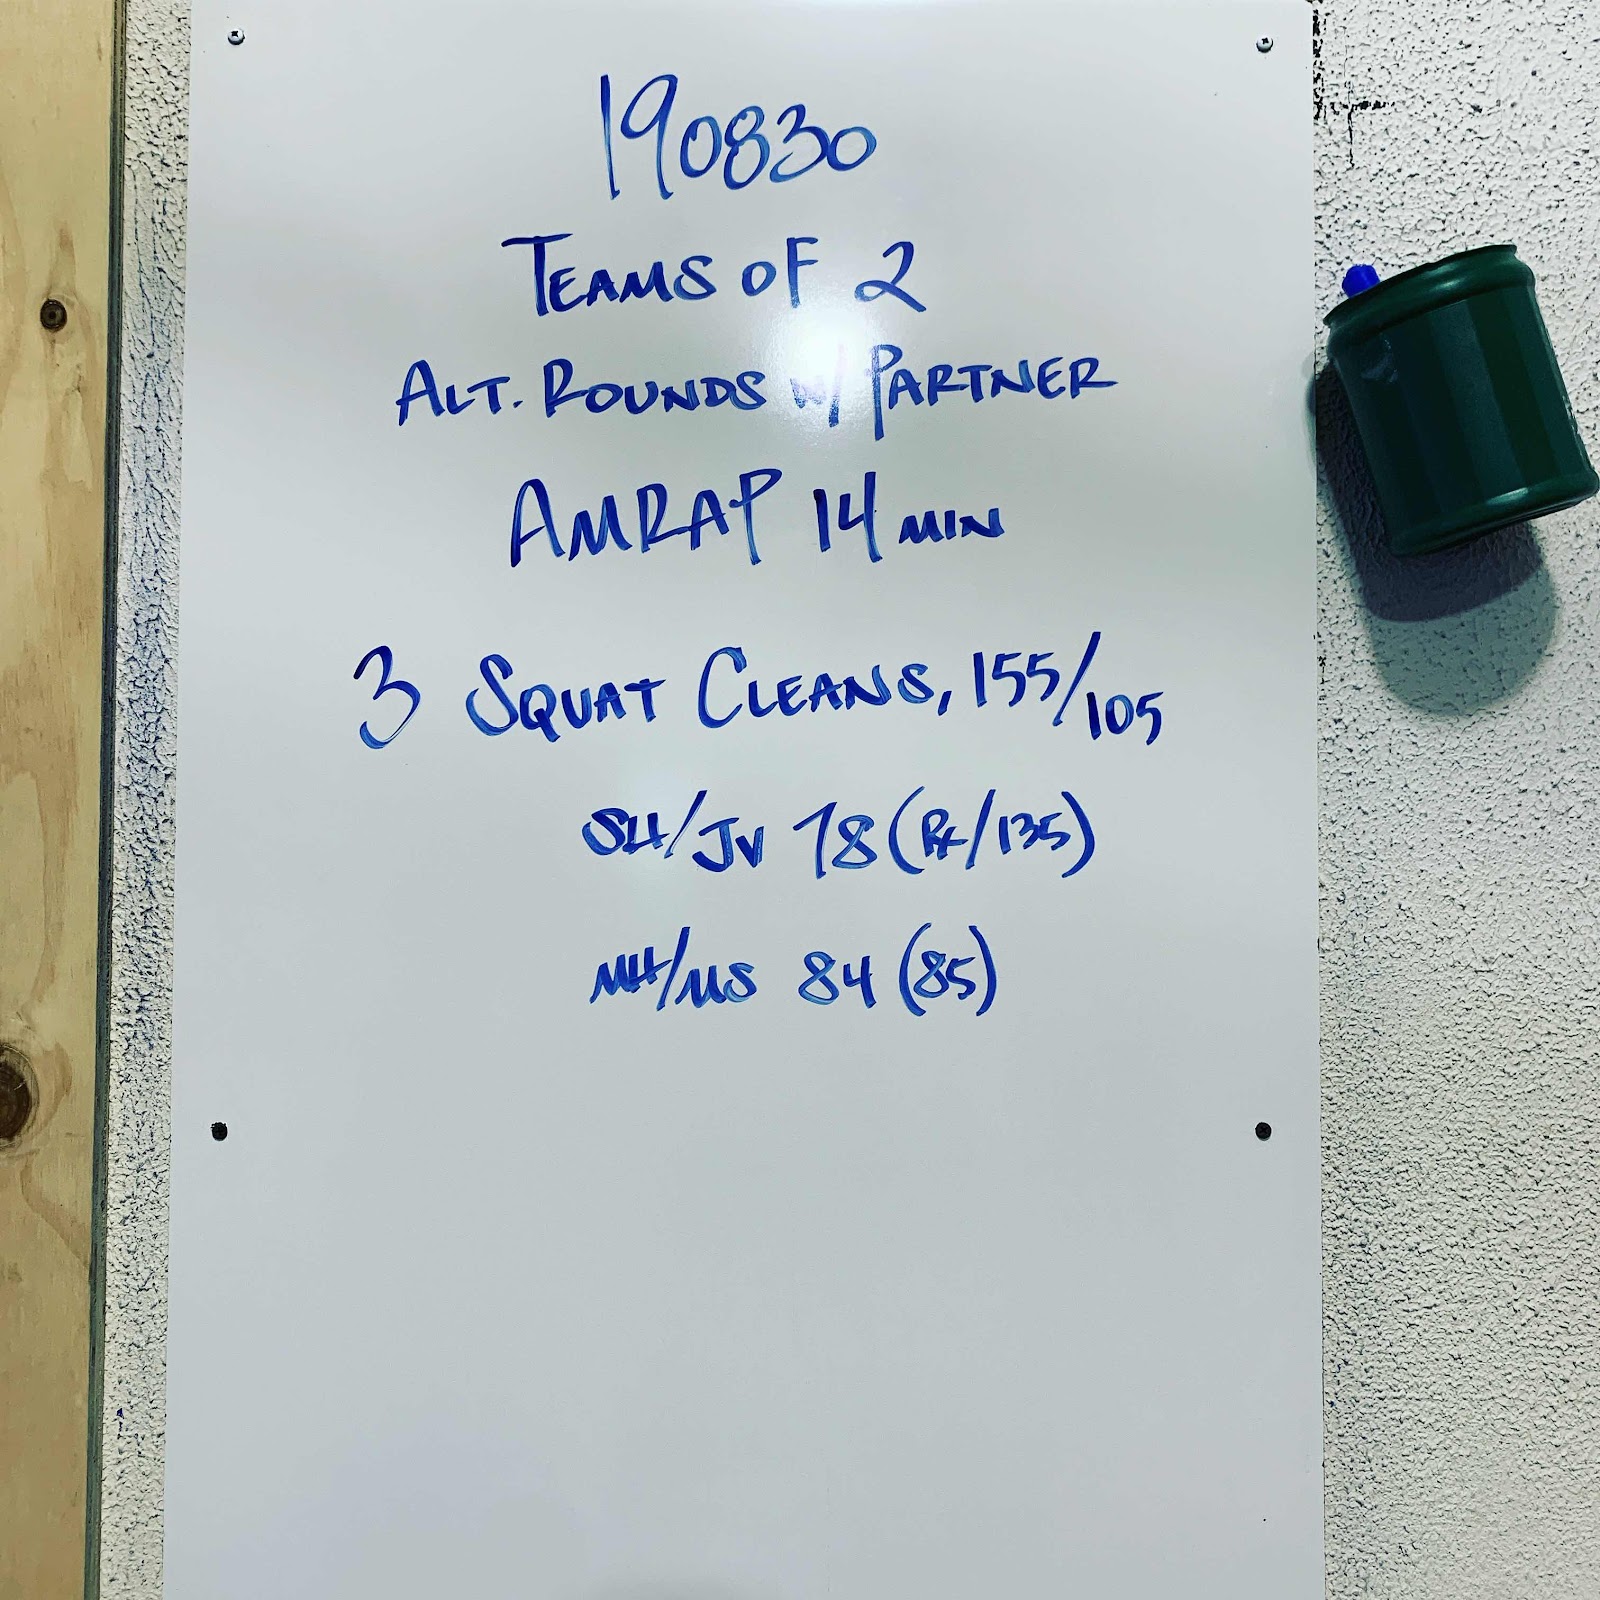 190830
TEAMS OF 2
ALT. ROUNDS W/ PARTNER
AMRAP 14 MIN
3 SQUAT CLEANS, 155/105
SH/JV 78 (RX/135)
MH/MS 84 (85)